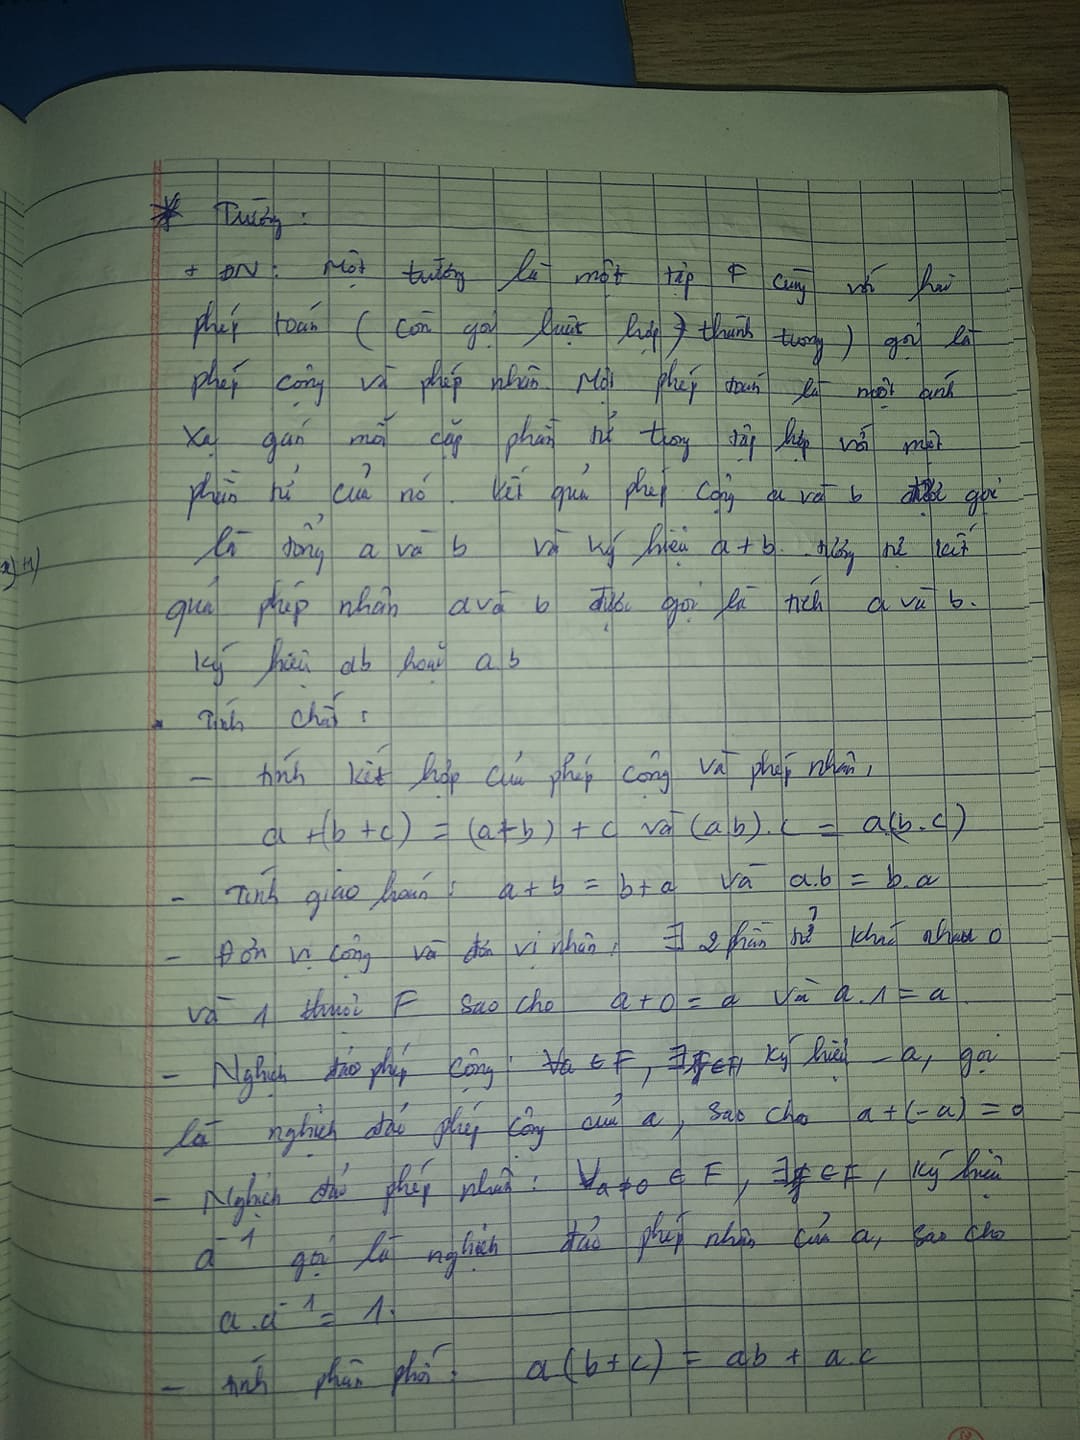 * Trường :
+ ĐN : Một trường là một tập F cùng với hai
phép toán ( còn gọi luật hợp thành trong ) gọi là
phép cộng và phép nhân. Mỗi phép toán là một ánh
xạ gán mỗi cặp phần tử trong tập hợp với một
phần tử của nó. Kết quả phép cộng a và b được gọi
là tổng a và b và ký hiệu a + b. tương tự kết
quả phép nhân a và b được gọi là tích a và b.
ký hiệu ab hoặc a.b
Tính chất :
- tính kết hợp của phép cộng và phép nhân,
a + (b + c) = (a + b) + c và (a b). c = a(b.c)
- Tính giao hoán : a + b = b + a và a.b = b.a
- Đơn vị cộng và đơn vị nhân : ∃ 2 phần tử khác nhau 0
và 1 thuộc F sao cho a + 0 = a và a.1 = a
- Nghịch đảo phép cộng : ∀a ∈ F, ∃ ∈ F, ký hiệu - a, gọi
là nghịch đảo phép cộng của a, sao cho a + (-a) = 0
- Nghịch đảo phép nhân : ∀a≠0 ∈ F, ∃ ∈ F, ký hiệu
a⁻¹ gọi là nghịch đảo phép nhân của a, sao cho
a.a⁻¹ = 1.
- tính phân phối : a(b + c) = ab + a.c